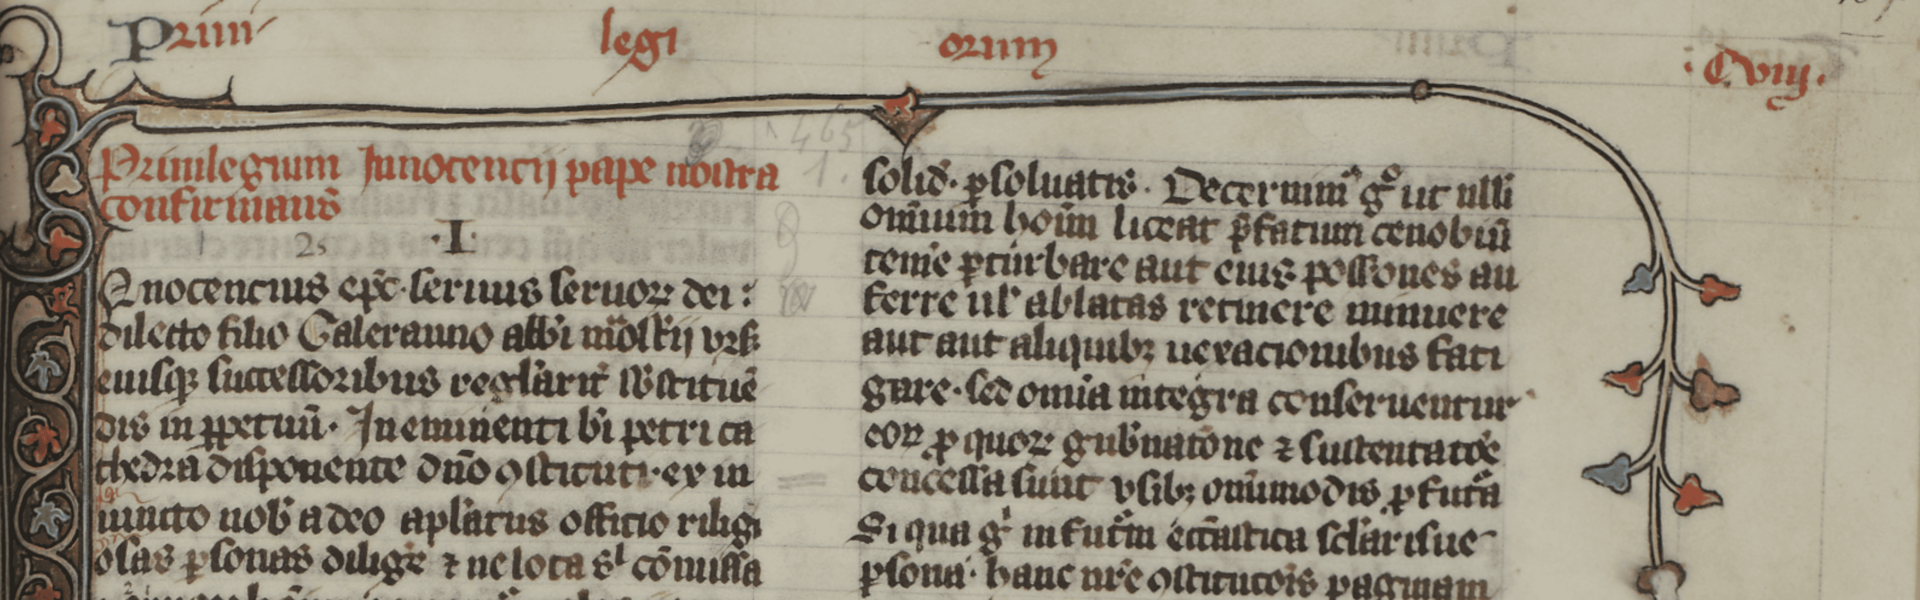 Priui legi orum · C viij ·
Priuilegium Innocencij pape nostra
confirmans
· I ·
Inocencius epc̄ · seruus seruoꝝ dei :
dilecto filio Galeranno abb̄i
eiusq; successoribus regl'arit' sbstituē
dis in ꝑpetuū · In eminenti bī petri ca
thedra disponente dn̄o ꝯstituti · ex in
iuncto nob̄ a deo apl'atus officio religi
osas ꝑsonas diligē ⁊ ne loca sꝰ cōmissa
solid̄ · ꝑsoluatis · Decernimꝰ gͦ ut nlli
omīum hoīm liceat p̄fatum cenobiū
tem̄e ꝑturbare aut eius possōnes au
ferre ul' ablatas retinere minuere
aut aut aliquibꝫ uexacionibus fati
gare · sed omīa integra conseruentur
eoꝝ ꝓ quoꝝ gub̄natōne ⁊ sustentatōe
concessa sunt vsibꝫ omīmodis ꝓfutā
Si qua gͦ in futm̄ ecc̄astica sclāris ue
ꝑsona · hanc nr̄e ꝯstitutōis paginam